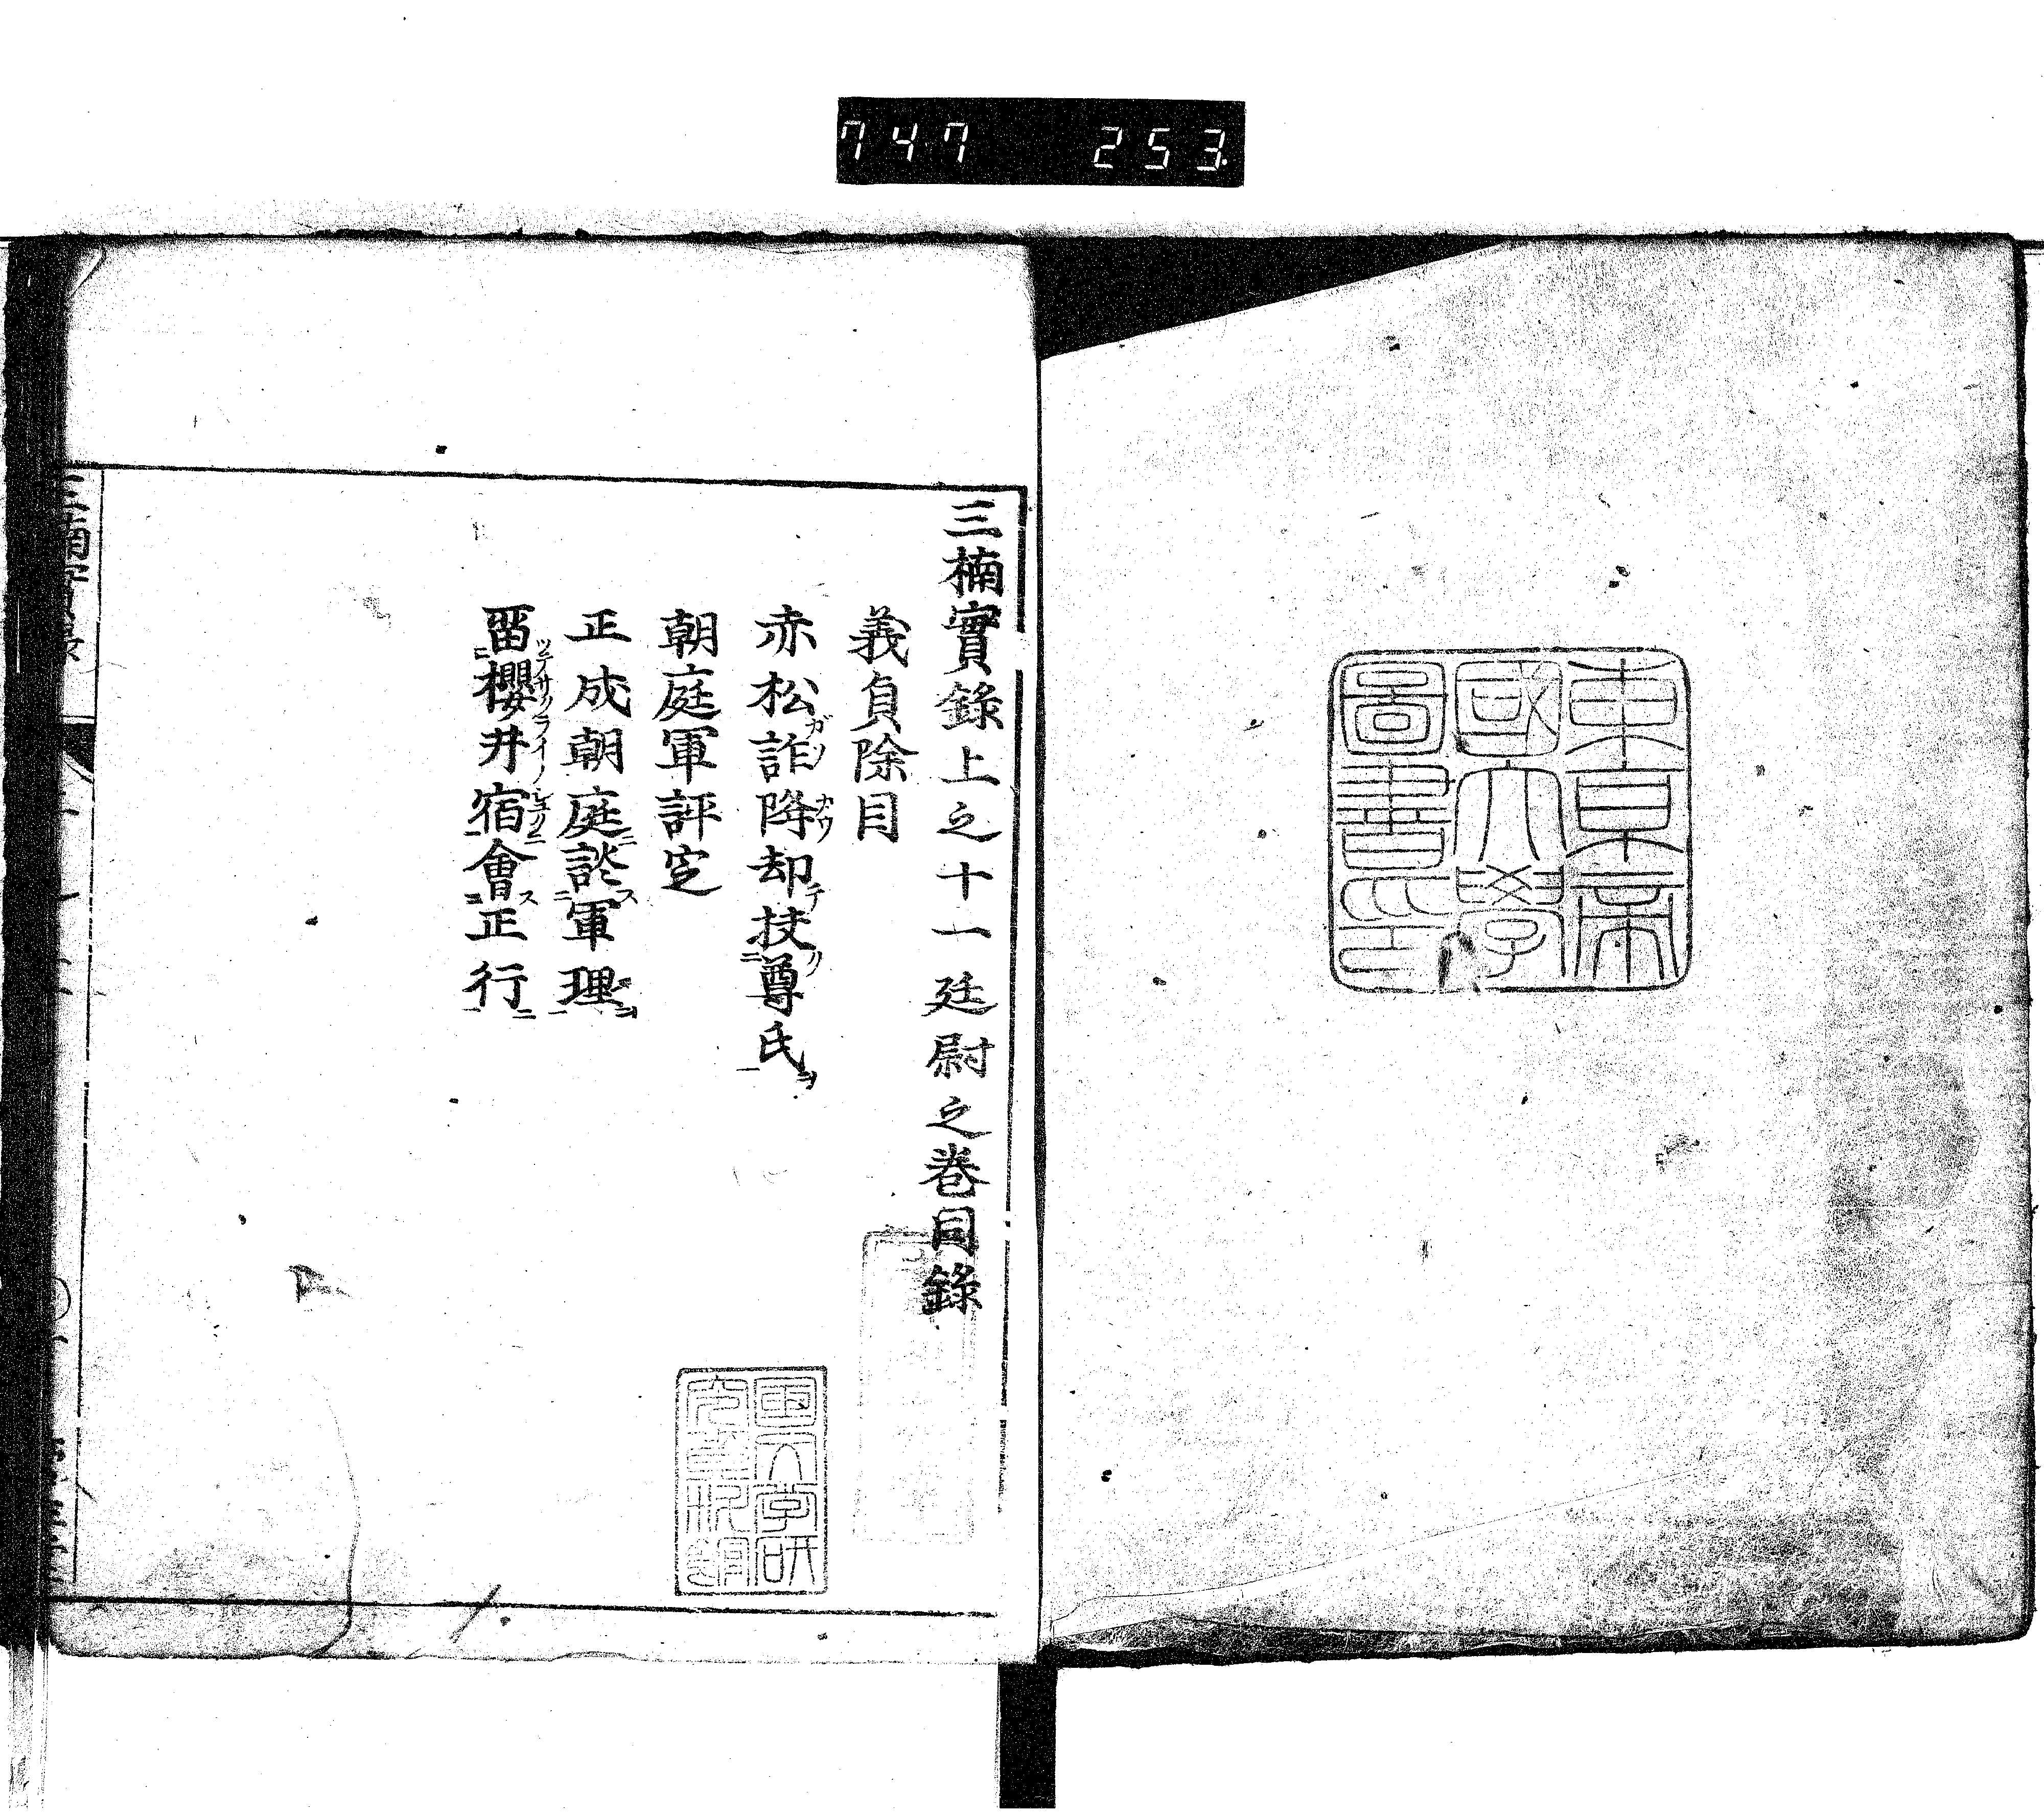 747 253
東京帝
國大學
圖書印
三楠實錄上之十一廷尉之卷目錄
義貞除目
赤松詐降却扶尊氏
朝庭軍評定
正成朝庭談軍理
留櫻井宿會正行
国文学研
究資料館
三楠實錄